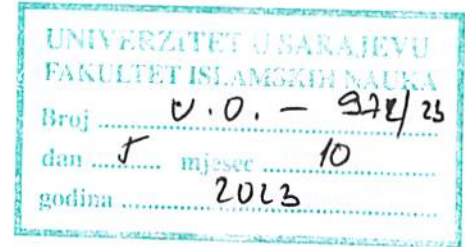 UNIVERZITET U SARAJEVU
FAKULTET ISLAMSKIH NAUKA
Broj ........ v.o. – 972/23
dan ..5.. mjesec ..10..
godina ..2023..